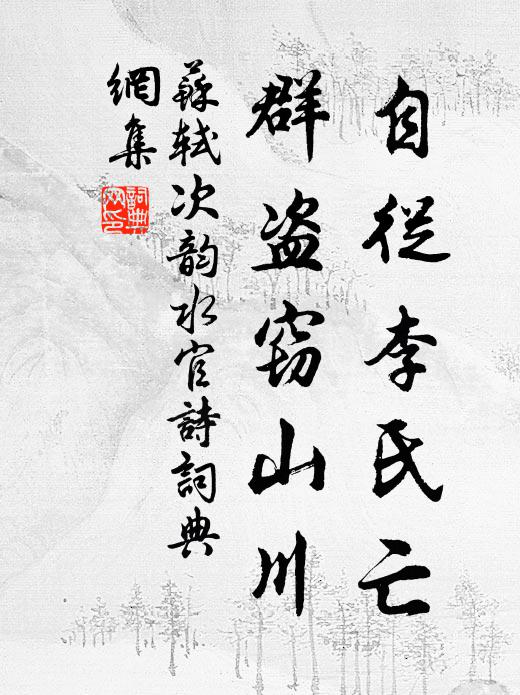 自從李氏亡
群盜窃山川
蘇軾次韵水官詩詞典
網集
詞典網印